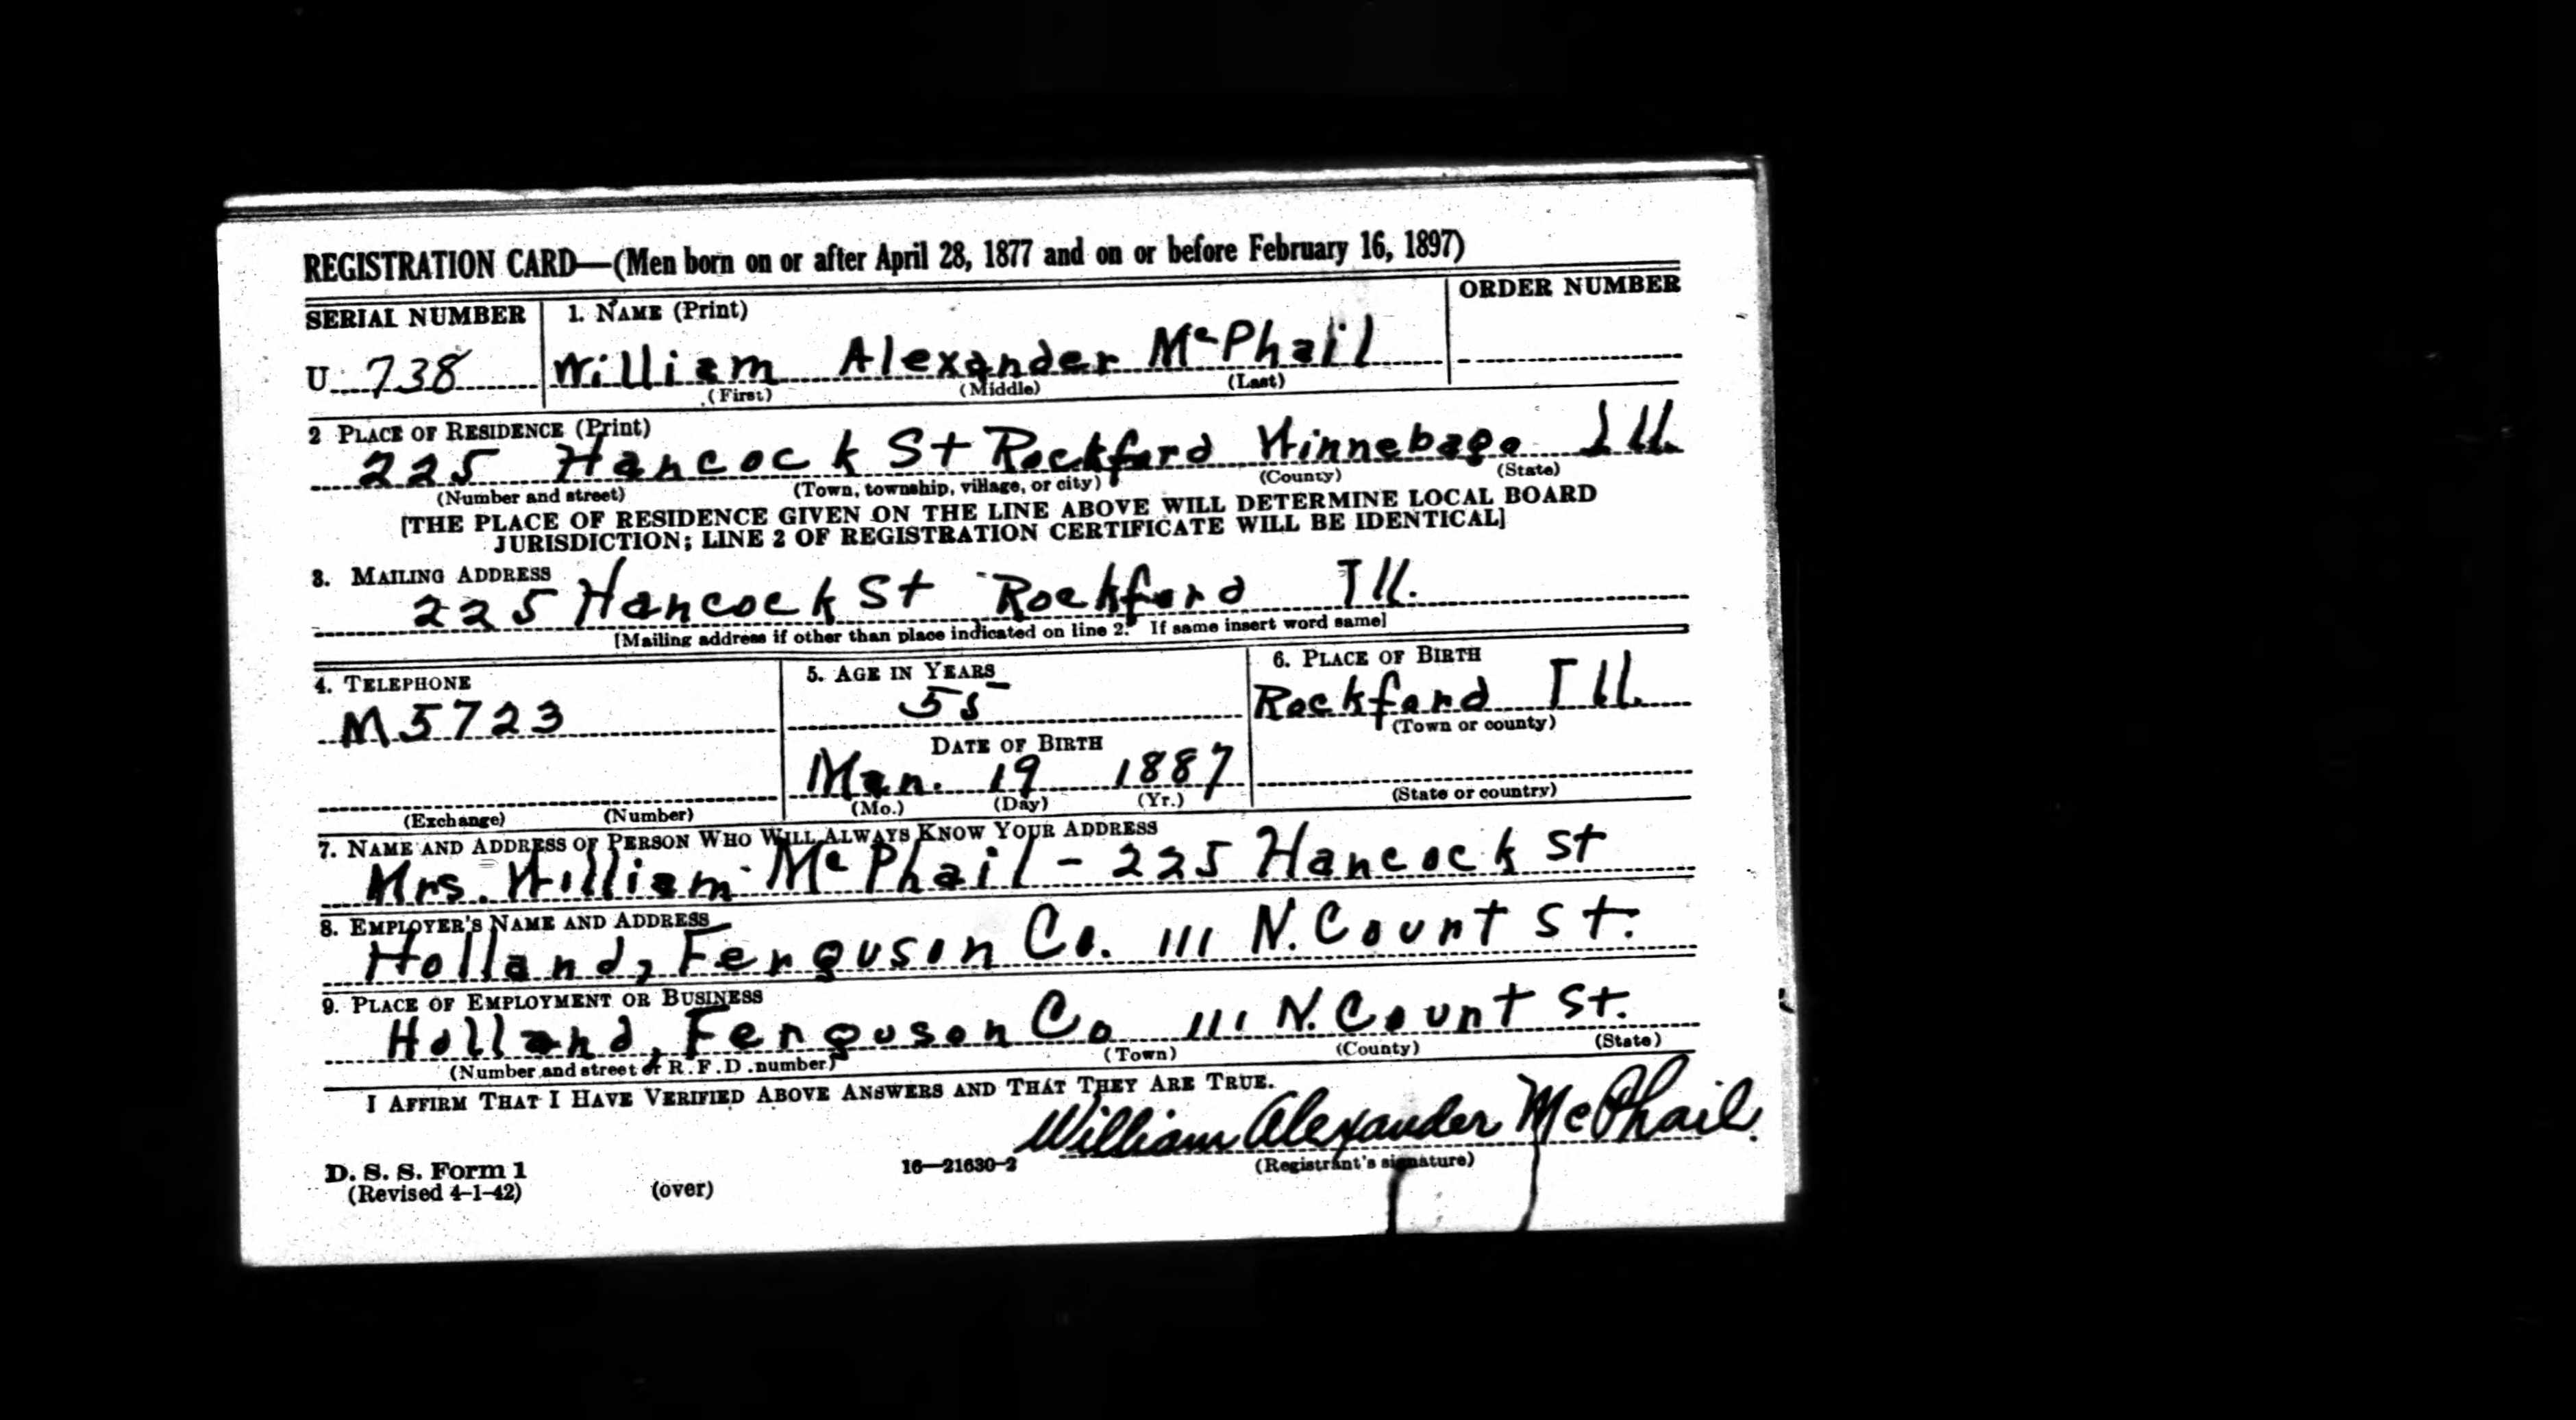 REGISTRATION CARD—(Men born on or after April 28, 1877 and on or before February 16, 1897)
SERIAL NUMBER 1. NAME (Print) ORDER NUMBER
U 738 William Alexander McPhail
(First) (Middle) (Last)
2 PLACE OF RESIDENCE (Print)
225 Hancock St Rockford Winnebago Ill.
(Number and street) (Town, township, village, or city) (County) (State)
[THE PLACE OF RESIDENCE GIVEN ON THE LINE ABOVE WILL DETERMINE LOCAL BOARD
JURISDICTION; LINE 2 OF REGISTRATION CERTIFICATE WILL BE IDENTICAL]
3. MAILING ADDRESS
225 Hancock St Rockford Ill.
[Mailing address if other than place indicated on line 2. If same insert word same]
4. TELEPHONE 5. AGE IN YEARS 6. PLACE OF BIRTH
M5723 55 Rockford Ill.
(Town or county)
DATE OF BIRTH
Mar. 19 1887
(Exchange) (Number) (Mo.) (Day) (Yr.) (State or country)
7. NAME AND ADDRESS OF PERSON WHO WILL ALWAYS KNOW YOUR ADDRESS
Mrs. William McPhail - 225 Hancock St
8. EMPLOYER'S NAME AND ADDRESS
Holland, Ferguson Co. 111 N. Court St.
9. PLACE OF EMPLOYMENT OR BUSINESS
Holland, Ferguson Co 111 N. Court St.
(Number and street or R.F.D. number) (Town) (County) (State)
I AFFIRM THAT I HAVE VERIFIED ABOVE ANSWERS AND THAT THEY ARE TRUE.
William Alexander McPhail.
D. S. S. Form 1 16—21630-2 (Registrant's signature)
(Revised 4-1-42) (over)